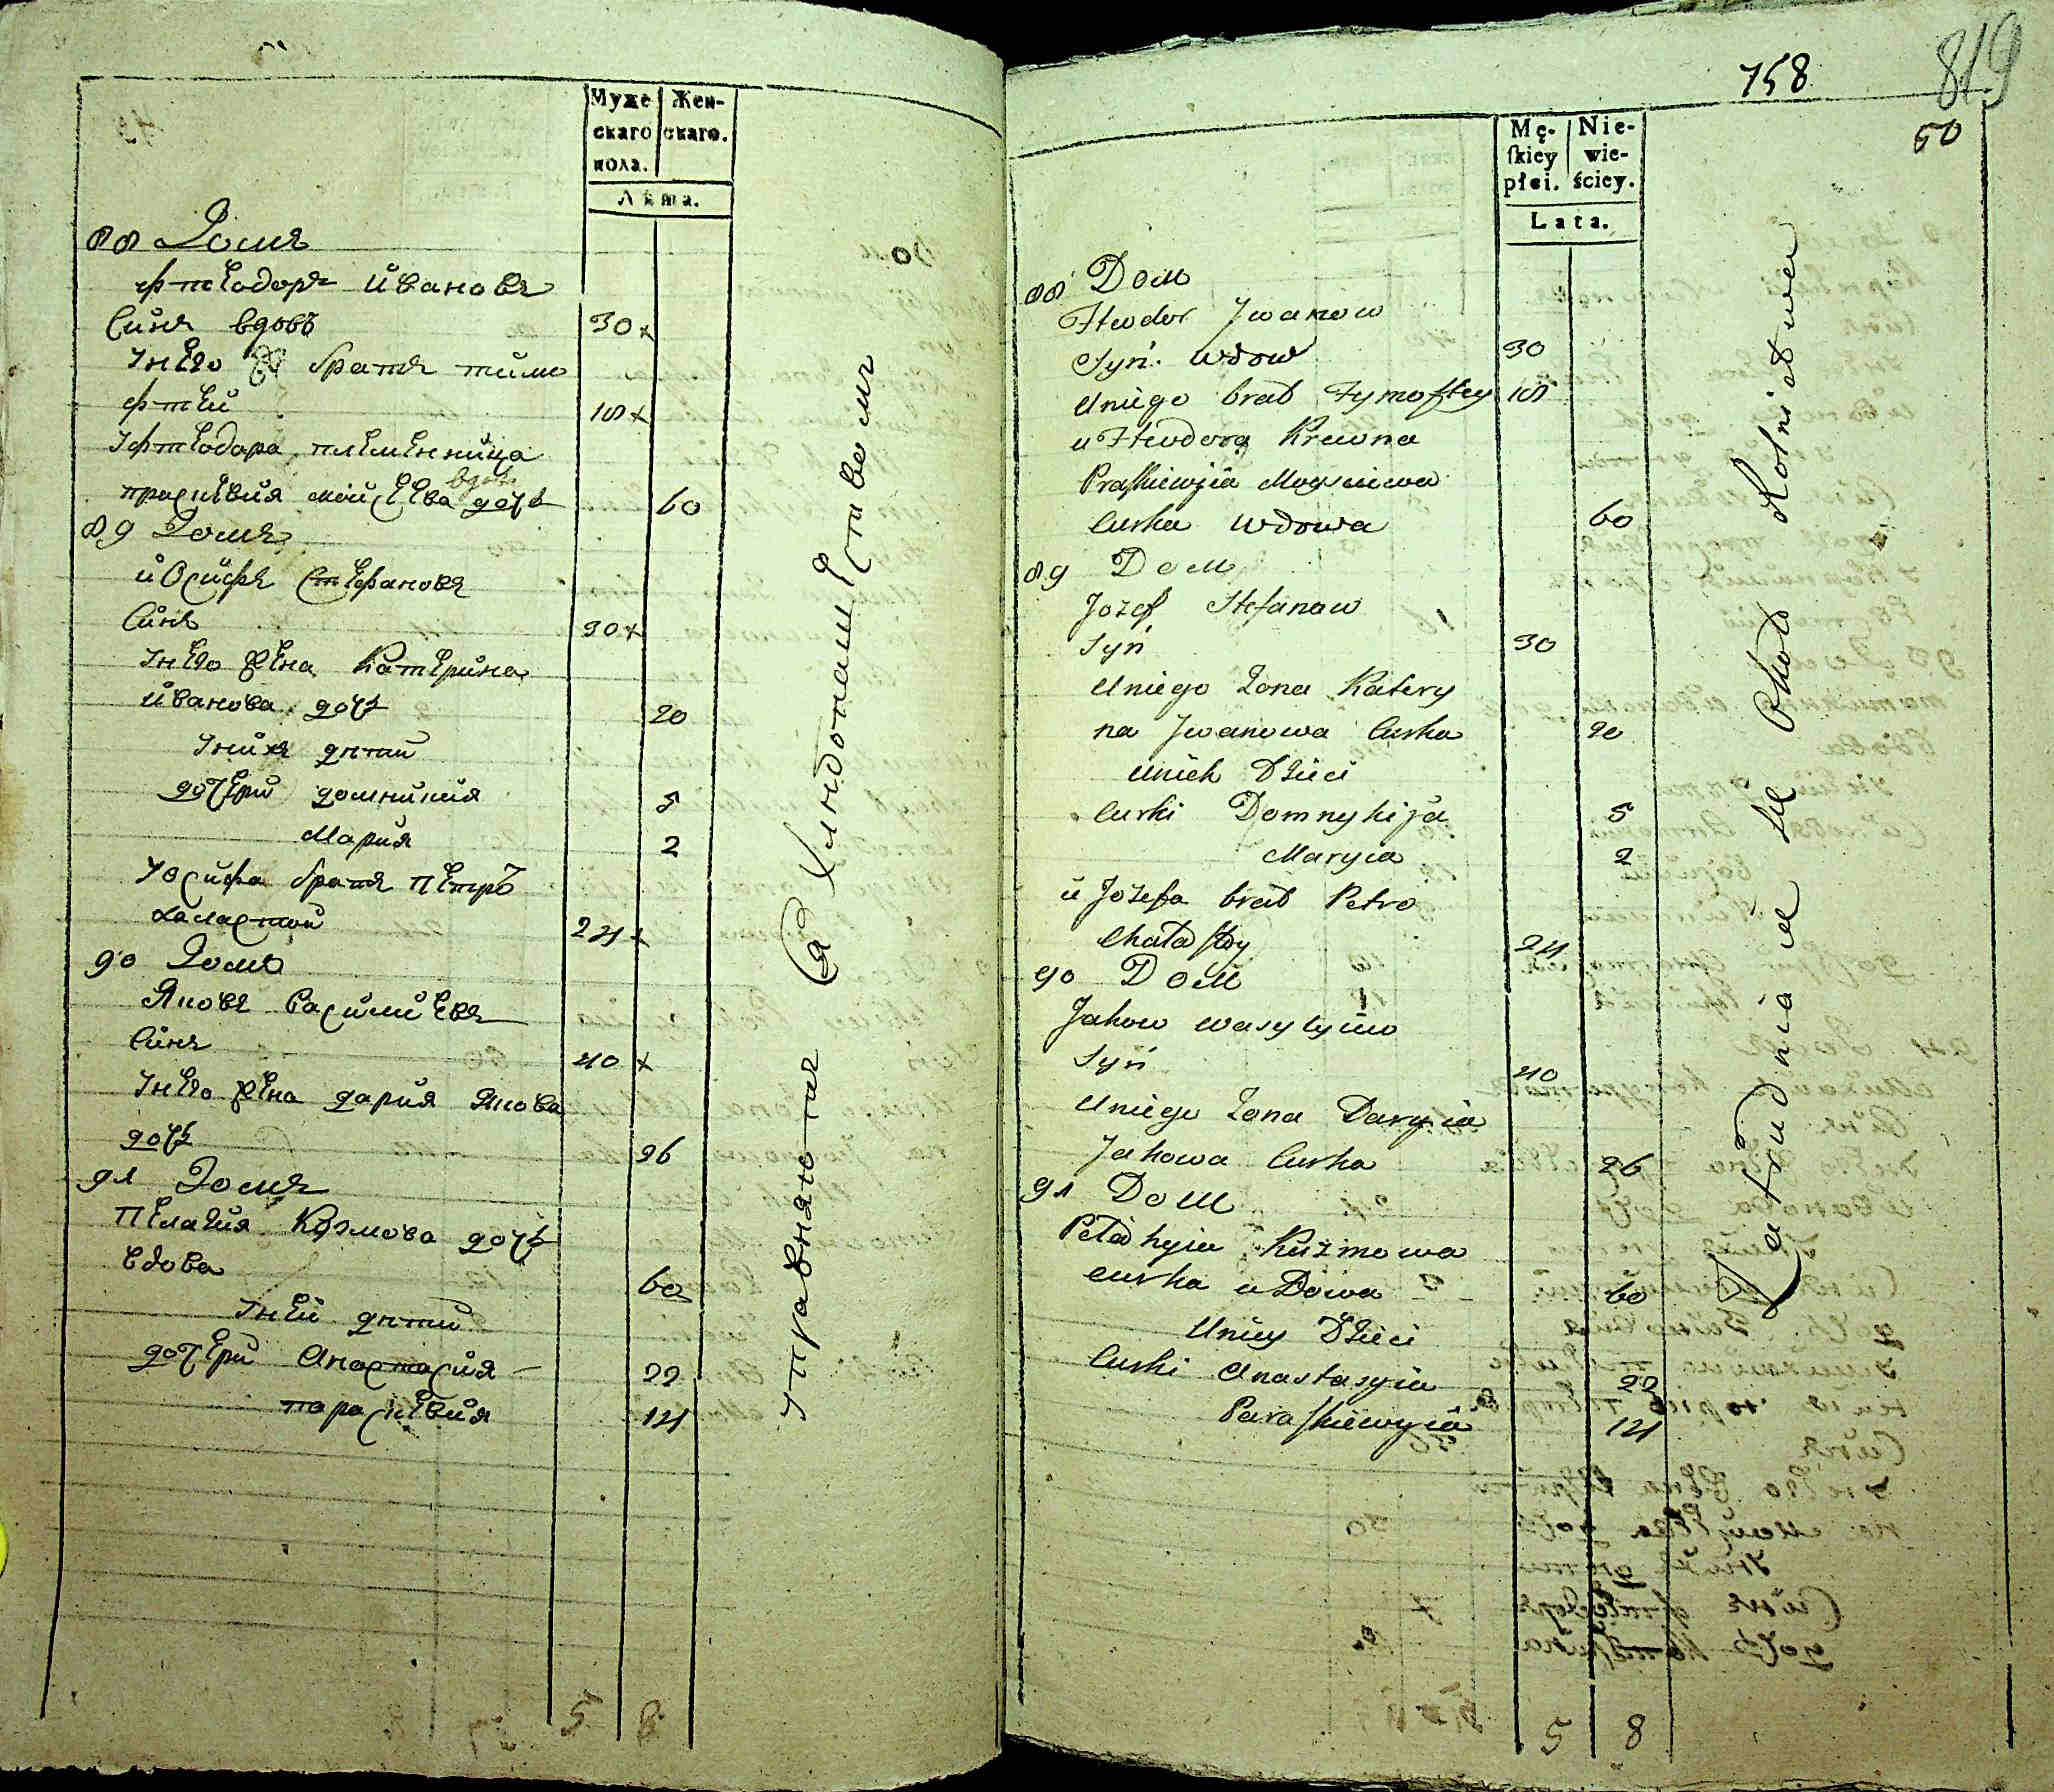 Муже
скаго
пола.
Жен-
скаго.
Лѣта.
88 Домъ
Фтеодоръ Ивановъ
Синъ вдовъ 30 x
Унего братъ тимо
фтей 18 x
Уфтеодора племенница
праскевия мойсеева дочь вдова 60
89 Домъ
Йосифъ Стефановъ
Синъ 30 x
Унего жена Катерина
Иванова дочь 20
Унихъ дѣти
дочери домникия 5
Мария 2
Уосифа братъ петръ
халастой 24 x
90 Домъ
Яковъ Василиевъ
Синъ 40 x
Унего жена дария Якова
дочь 26
91 Домъ
Пелагия Козмова дочь
вдова 60
Уней дѣти
дочери Анастасия 22
параскевия 14
5 8
упражняются въ Хлѣбопашествомъ
758
819
50
Mę-
skiey
płci.
Nie-
wie-
ściey.
Lata.
88 Dom
Fteodor Jwanow
Syn wdow 30
Uniego brat Tymoftey 18
u Fteodora Krewna
Praskiewija Moysiejewa
Curka wdowa 60
89 Dom
Jozef Stefanow
Syn 30
Uniego Żona Katery
na Jwanowa Curka 20
Unich Dzieci
Curki Domnykija 5
Maryia 2
u Jozefa brat Petro
Chałastoy 24
90 Dom
Jakow Wasyliiw
Syn 40
Uniego Żona Daryia
Jakowa Curka 26
91 Dom
Pełahyia Kuzmowa
Curka uDowa 60
Uniey Dzieci
Curki Anastasyia 22
Paraskiewyia 14
5 8
Zatrudniaie się Około Rolnictwa